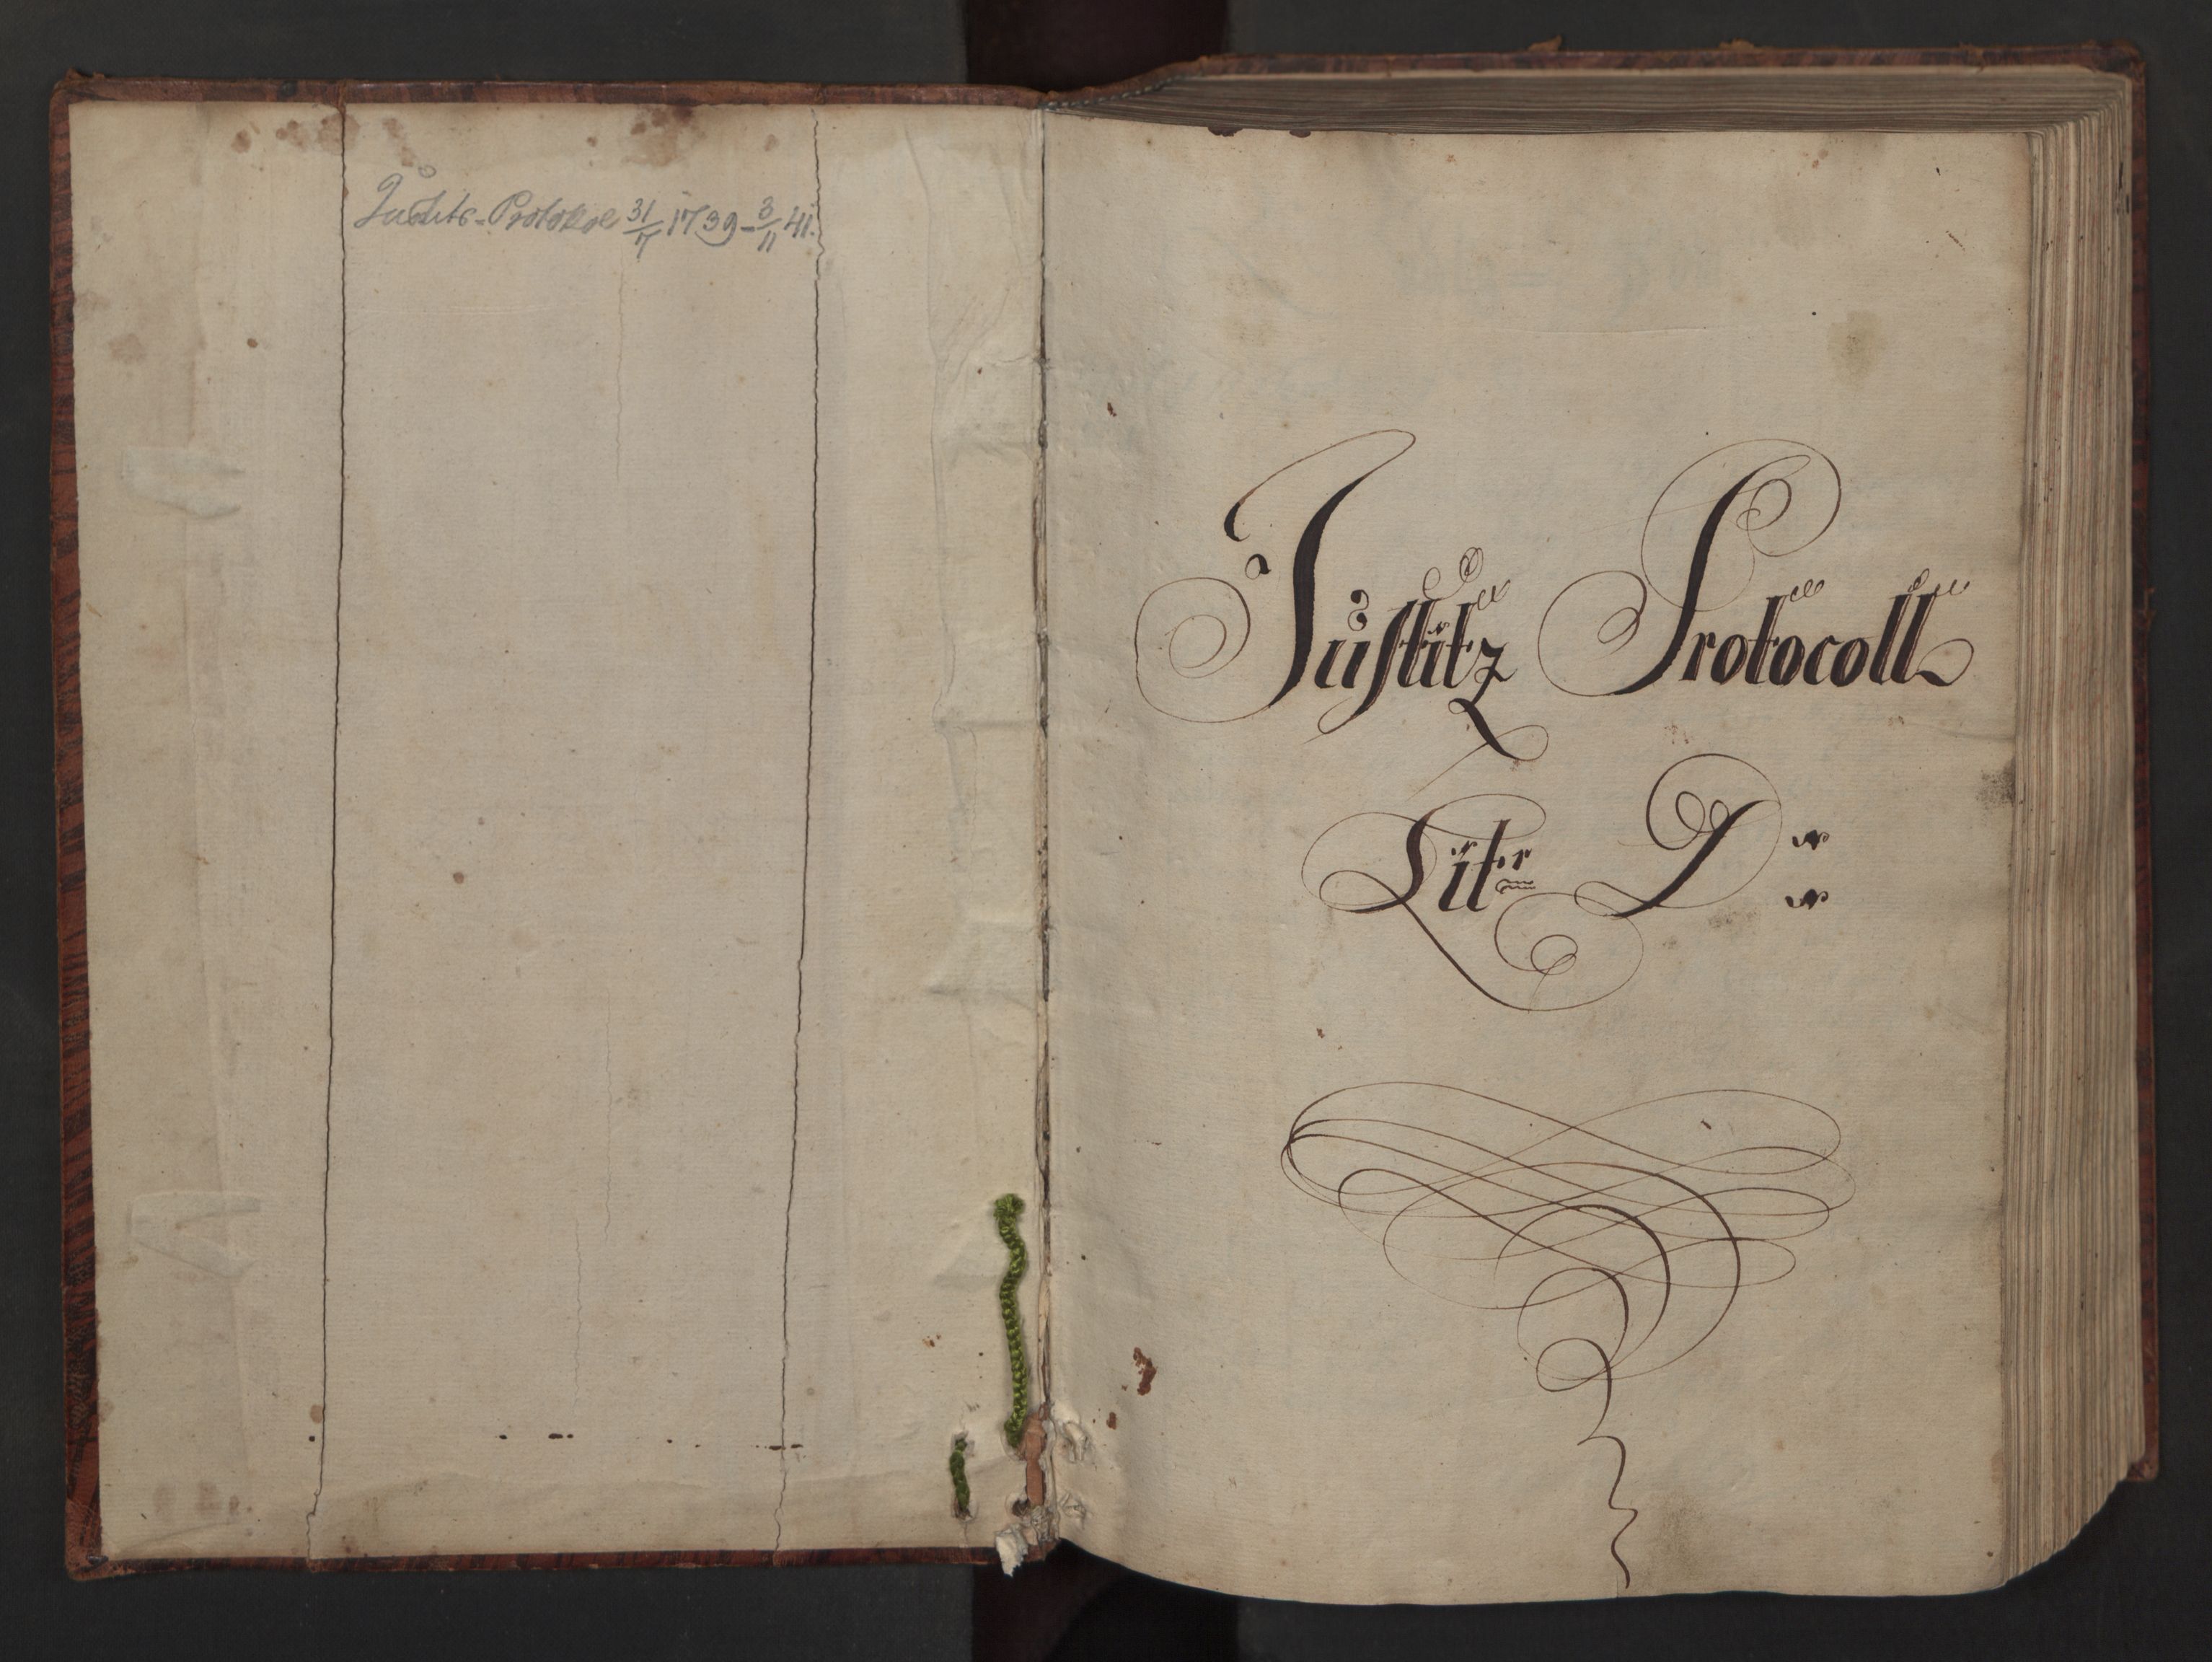 Justits-Protokol 31/7 1739-3/11 41.
Justitz Protocoll
Litr D: